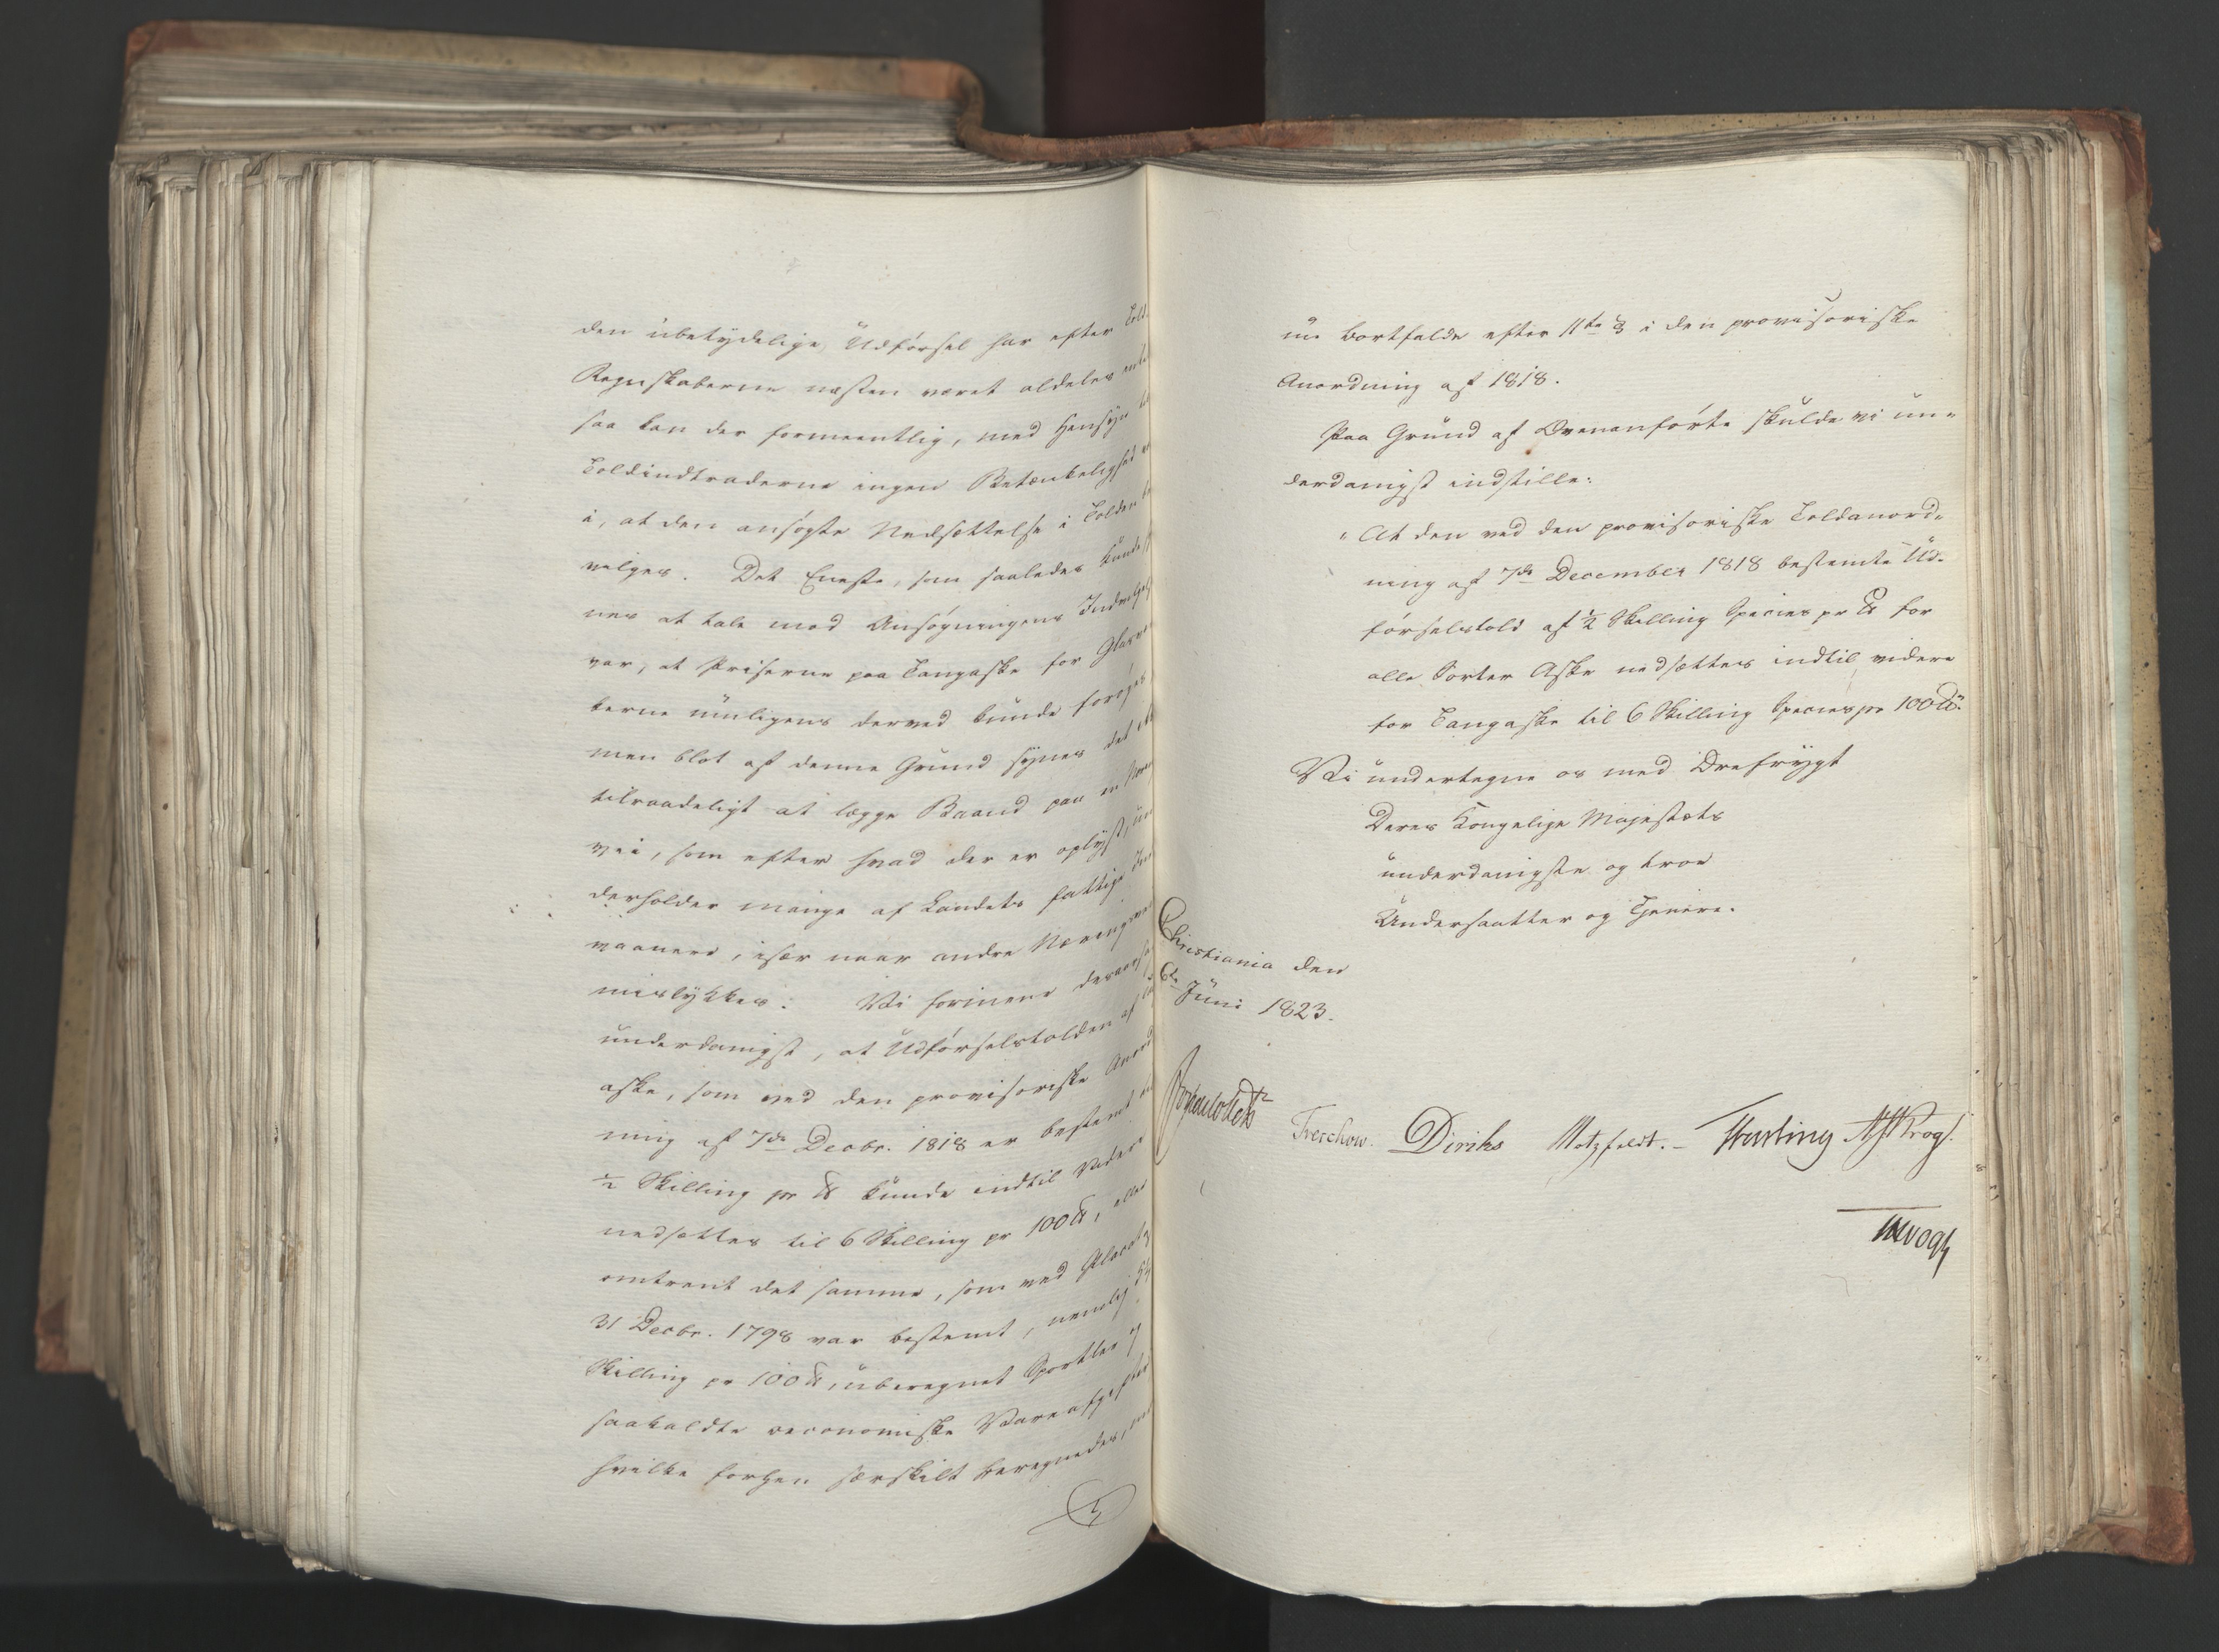 den ubetydelige Udførsel har efter Told-
Regnskaberne næsten været aldeles
saa kan der formeentlig, med Hensyn
Toldindtraderne ingen Betænkelighed
i, at den ansøgte Nedsættelse i Tolden
vilges. Det Eneste, som saaledes kunde
nes at tale mod Ansøgningens
var, at Priserne paa Tangaske for
kerne muligens derved kunde forøges
men blot af denne Grund synes det
tilraadeligt at lægge Baand paa en
vei, som efter hvad der er oplyst, un
derholder mange af Landets fattige
vaanere, især naar andre
mislykkes. Vi formene
underdanigst, at Udførselstolden af
aske, som ved den provisoriske Anord
ning af 7de Decbr. 1818 er bestemt
½ Skilling pr ℔ kunde indtil Videre
nedsættes til 6 Skilling pr 100 ℔, eller
omtrent det samme, som ved Placat
31 Decbr. 1798 var bestemt, nemlig
Skilling pr 100 ℔, uberegnet Sportler og
saakaldte oeconomiske Vareafgifter
hvilke forhen særskilt beregnedes,
nu bortfalde efter 11te § i den provisoriske
Anordning af 1818.
Paa Grund af Ovenanførte skulde vi un-
derdanigst indstille:
"At den ved den provisoriske Toldanord-
ning af 7de December 1818 bestemte Ud-
førselstold af ½ Skilling Species pr ℔ for
alle Sorter Aske nedsættes indtil videre
for Tangaske til 6 Skilling Species pr 100 ℔."
Vi undertegne os med Ærefrygt
Deres Kongelige Majestæts
underdanigste og troe
Undersaatter og Tjenere.
Christiania den
6te Juni 1823.
Treschow. Diriks Motzfeldt. Krog.
Vogt